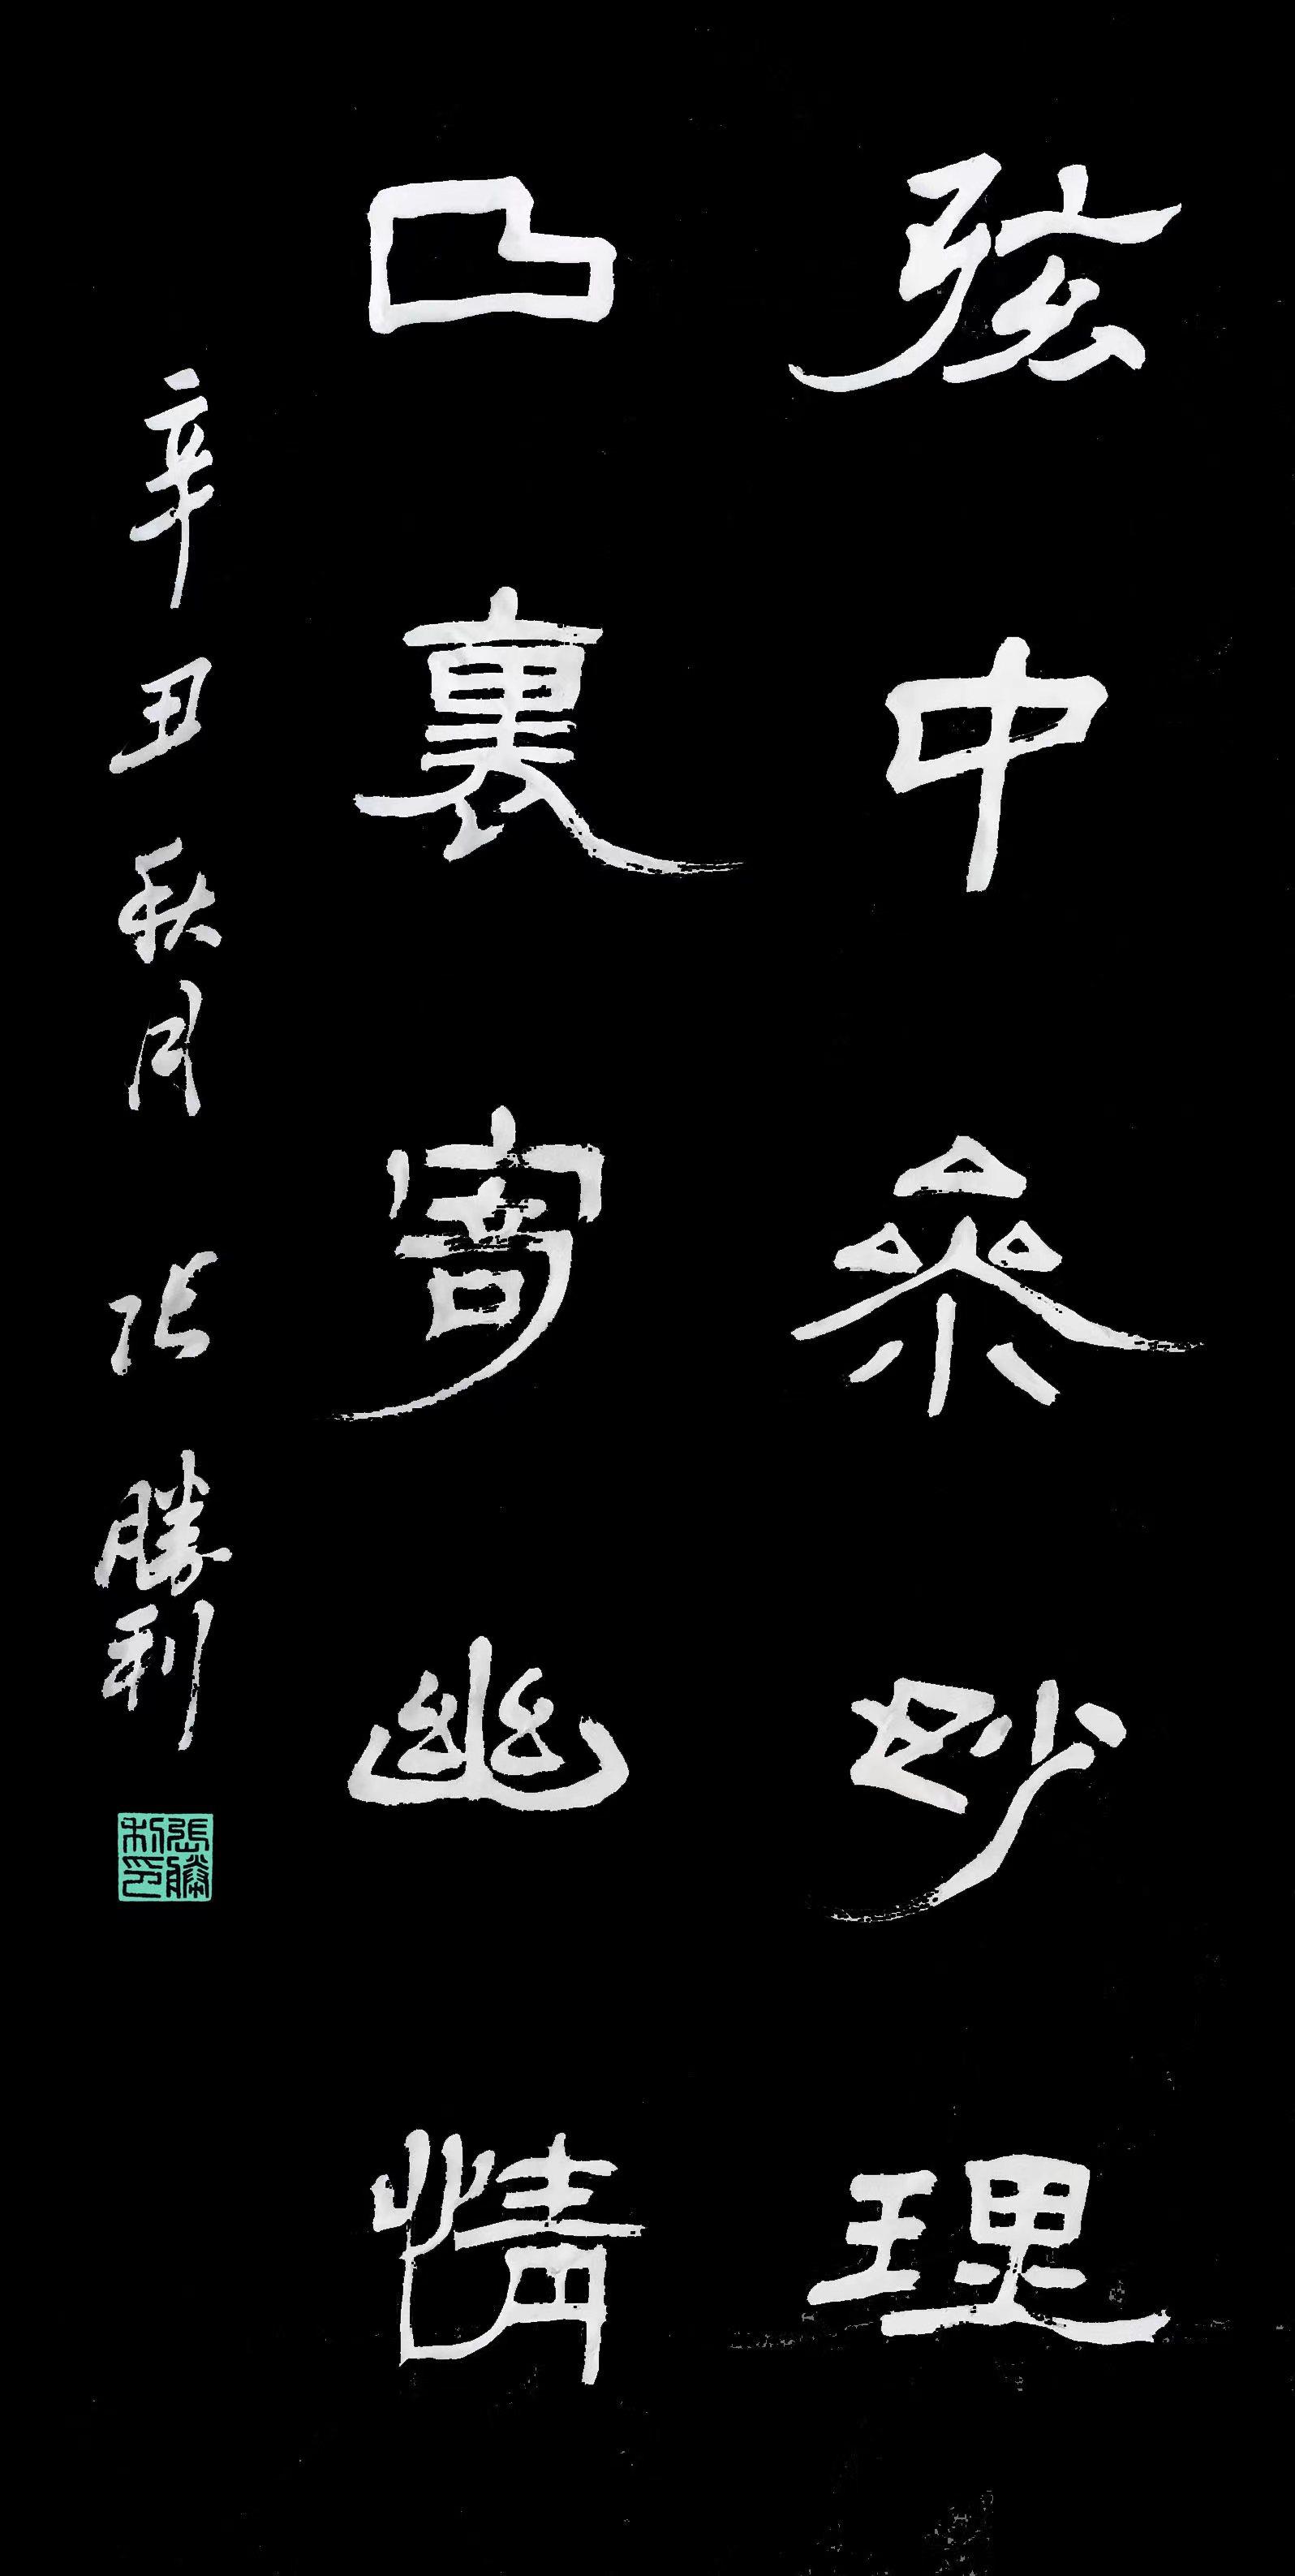 弦中參妙理
曲裏寄幽情
辛丑秋月 張勝利
張勝利印